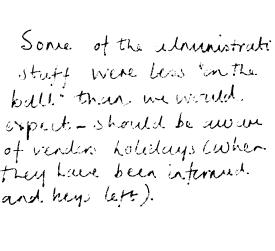 Some of the administrati
staff were less "on the
ball" than we would
expect - should be aware
of vendors holidays (when
they have been informed
and keys left).